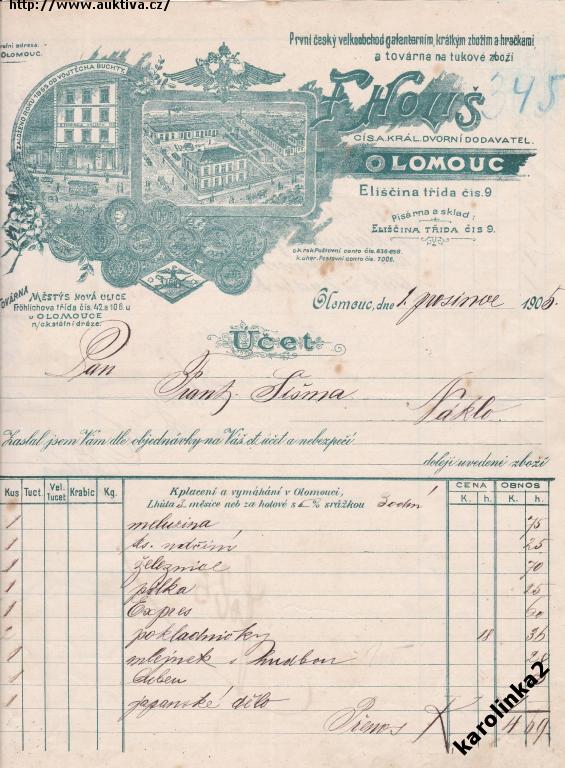 http://www.auktiva.cz/
OLOMOUC.
První český velkoobchod galanterním, krátkým zbožím a hračkami
a továrna na tukové zboží
ZALOŽENO ROKU 1899 OD VOJTĚCHA BUCHTY.
345
F. Houš
CÍS. A. KRÁL. DVORNÍ DODAVATEL.
OLOMOUC
Eliščina třída čís. 9
Písárna a sklad:
ELIŠČINA TŘÍDA ČÍS 9.
c.k. rak. Poštovní conto čís. 836-858.
k. uher. Poštovní conto čís. 7006.
TOVÁRNA
MĚSTYS NOVÁ ULICE
Fröhlichova třída čís. 42 a 106 u
u OLOMOUCE
n/c.k. státní dráze.
Olomouc, dne 1. prosince 1905.
Účet
Pan
Frant. Šišma
Náklo.
Zaslal jsem Vám dle objednávky na Váš ct. účet a nebezpečí
doleji uvedené zboží
Kus Tuct. Vel. Tucet Krabic Kg. K placení a vymáhání v Olomouci, CENA OBNOS
Lhůta 3 měsíce neb za hotové s % srážkou K. h. K. h.
1 meluzina 75
1 25
1 železnice 70
1 pilka 25
1 Expres 60
2 pokladničky 18 36
1 mlejnek s hudbou
1 buben
1 japanské dělo
Přenos K 4 69
karolinka2